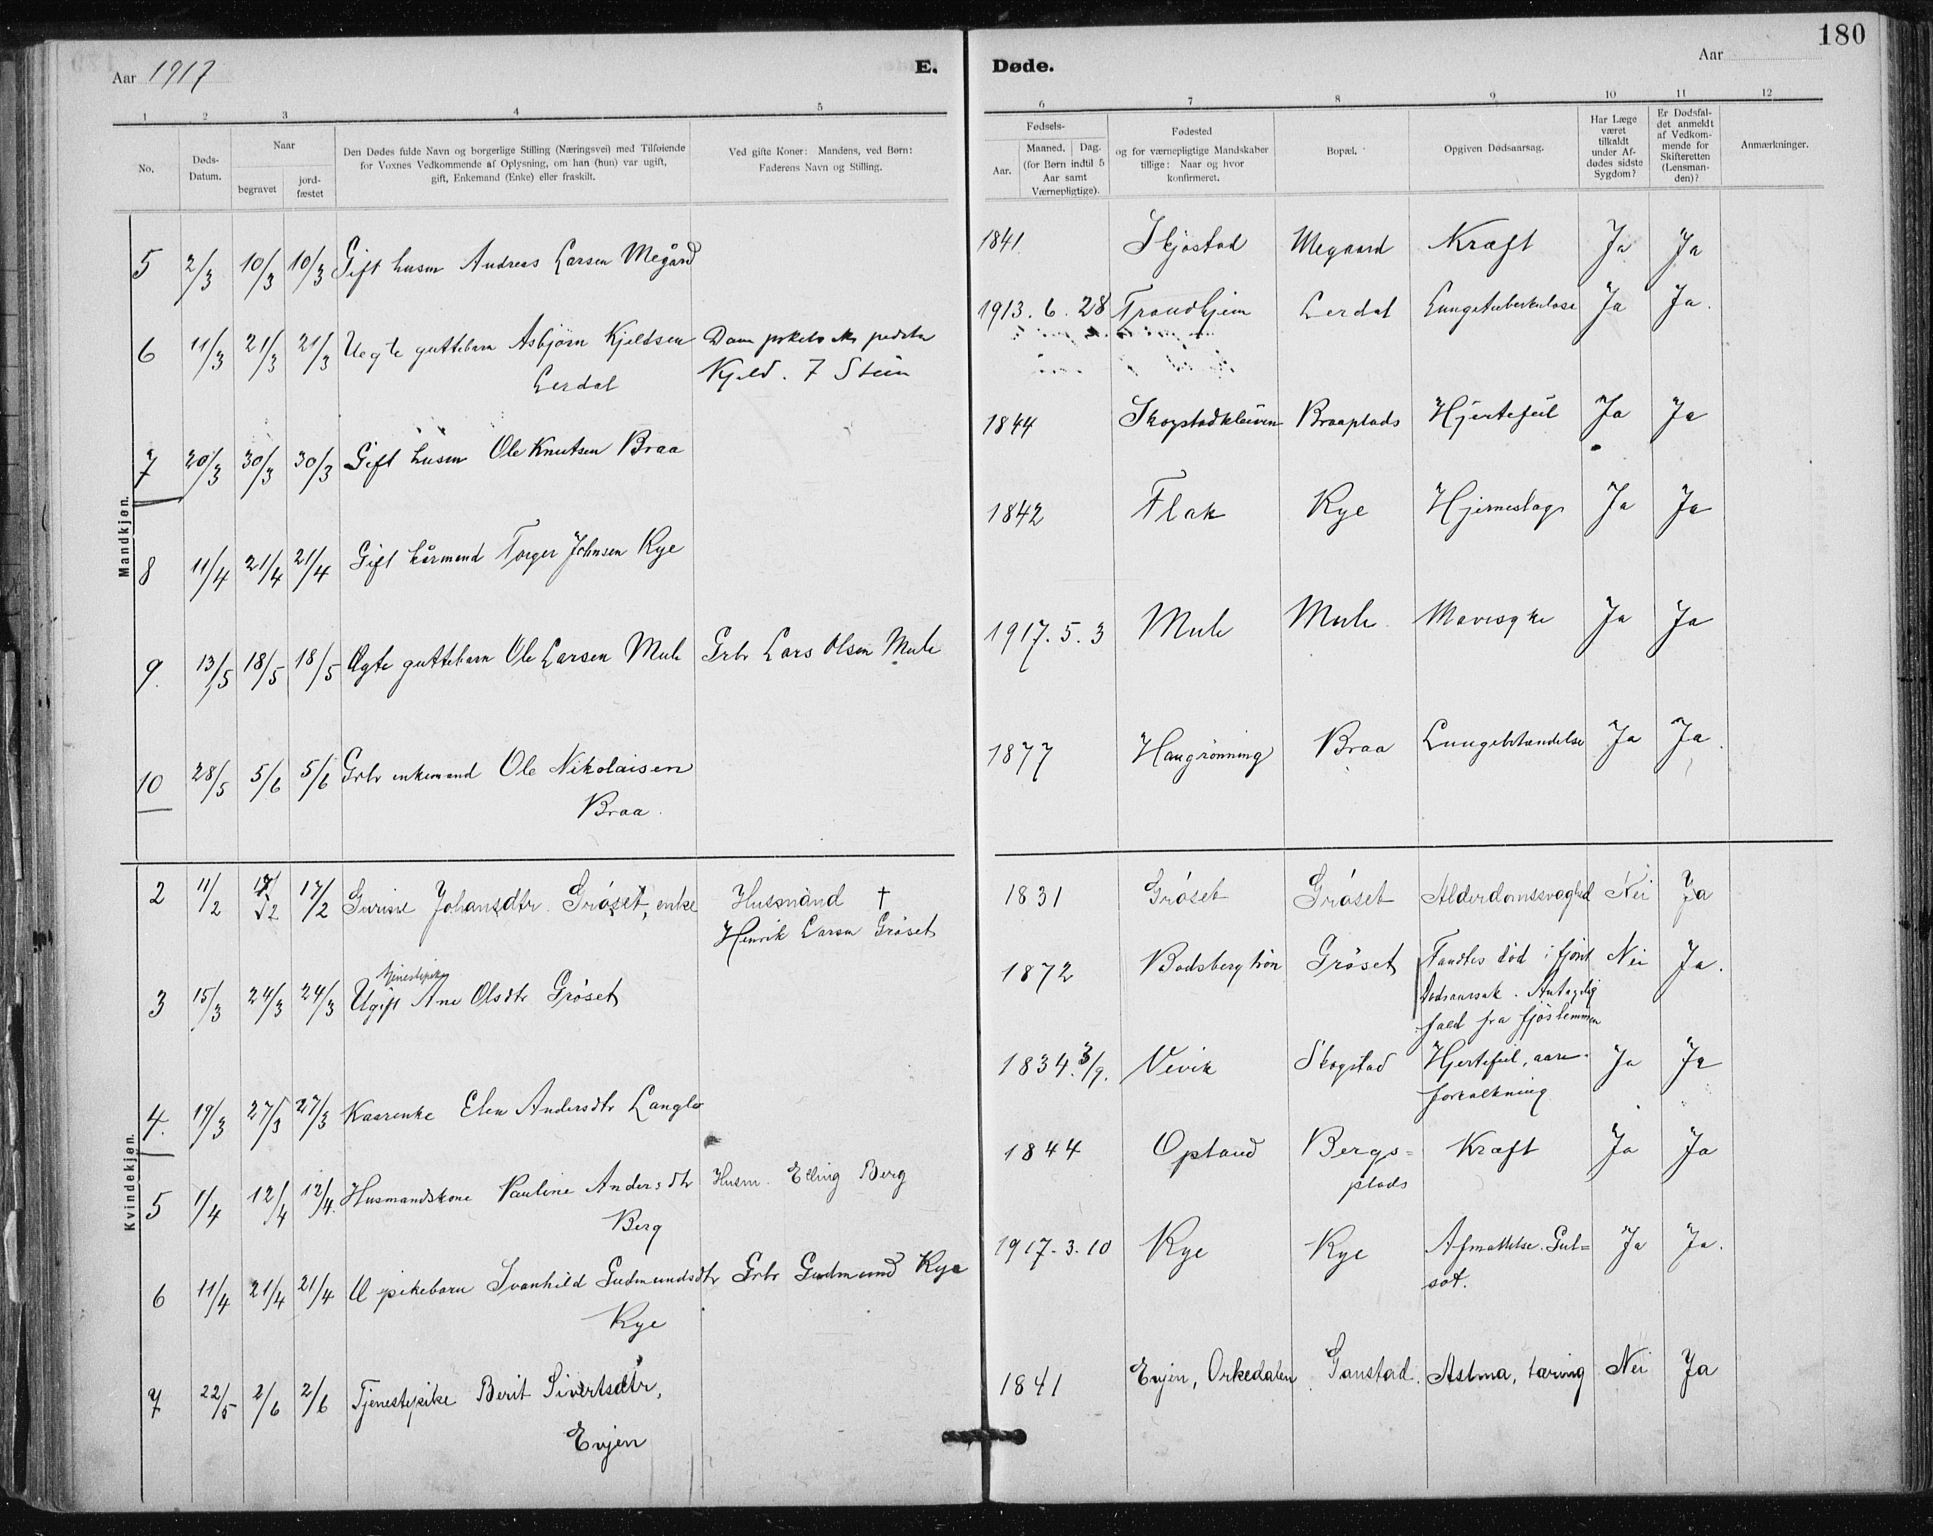 180
Aar 1917 E. Døde. Aar
1 2 3 4 5 6 7 8 9 10 11 12
No. Døds-Datum. Naar begravet jordfæstet Den Dødes fulde Navn og borgerlige Stilling (Næringsvei) med Tilføiende for Voxnes Vedkommende af Oplysning, om han (hun) var ugift, gift, Enkemand (Enke) eller fraskilt. Ved gifte Koner: Mandens, ved Børn: Faderens Navn og Stilling. Fødsels- Aar. Maaned. Dag. (for Børn indtil 5 Aar samt Værnepligtige). Fødested og for værnepligtige Mandskaber tillige: Naar og hvor konfirmeret. Bopæl. Opgiven Dødsaarsag. Har Læge været tilkaldt under Afdødes sidste Sygdom? Er Dødsfaldet anmeldt af Vedkommende for Skifteretten (Lensmanden)? Anmærkninger.
Mandkjøn.
5 2/3 10/3 10/3 Gift husm Andreas Larsen Megård 1841 Skjøstad Megaard Kræft Ja Ja
6 11/3 21/3 21/3 Uegte guttebarn Asbjørn Kjeldsen 1913. 6. 28 Trondhjem Lerdal Lungetuberkulose Ja Ja.
Lerdal Kjeld. 7 Stein
7 20/3 30/3 30/3 Gift husm Ole Knutsen Braa 1844 Skogstadkleiven Braaplads Hjertefeil Ja Ja
8 11/4 21/4 21/4 Gift kårmand Torger Johnsen Kye 1842 Flak Kye Hjerneslag Ja Ja
9. 13/5 18/5 18/5 Ægte guttebarn Ole Larsen Mule Grbr Lars Olsen Mule 1917. 5. 3 Mule Mule Mavesyke Ja Ja
10 28/5 5/6 5/6 Grbr enkemand Ole Nikolaisen 1877 Haugrønning Braa Lungebetændelse Ja Ja.
Braa.
Kvindekjøn.
2 11/2 17/2 17/2 Gurine Johansdtr. Grøset, enke Husmand † 1831 Grøset Grøset Alderdomssvaghed Nei Ja
Henrik Larsen Grøset
3 15/3 24/3 24/3 Ugift tjenestepike Ane Olsdtr Grøset 1872 Bodsbergtrøn Grøset Fandtes død i fjøset Nei Ja.
Dødsaarsak. Antagelig
fald fra fjøslemmen
4. 19/3 27/3 27/3 Kaarenke Elen Andersdtr Langlo 1834. 3/9. Vevik Skogstad Hjertefeil, aare- Ja Ja
forkalkning
5 1/4 12/4 12/4. Husmandskone Pauline Andersdtr Husm. Elling Berg 1844 Opland Bergs= Kræft Ja Ja
Berg plads
6 11/4 21/4 21/4 Æ pikebarn Svanhild Gudmundsdtr Grbr Gudmund Kye 1917. 3. 10 Kye Kye Afmattelse. Gul= Ja Ja.
Kye sot.
7 22/5 2/6 2/6 Tjenestepike Berit Sivertsdtr, 1841 Evjen, Orkedalen Ganstad. Astma, tæring Nei Ja
Evjen